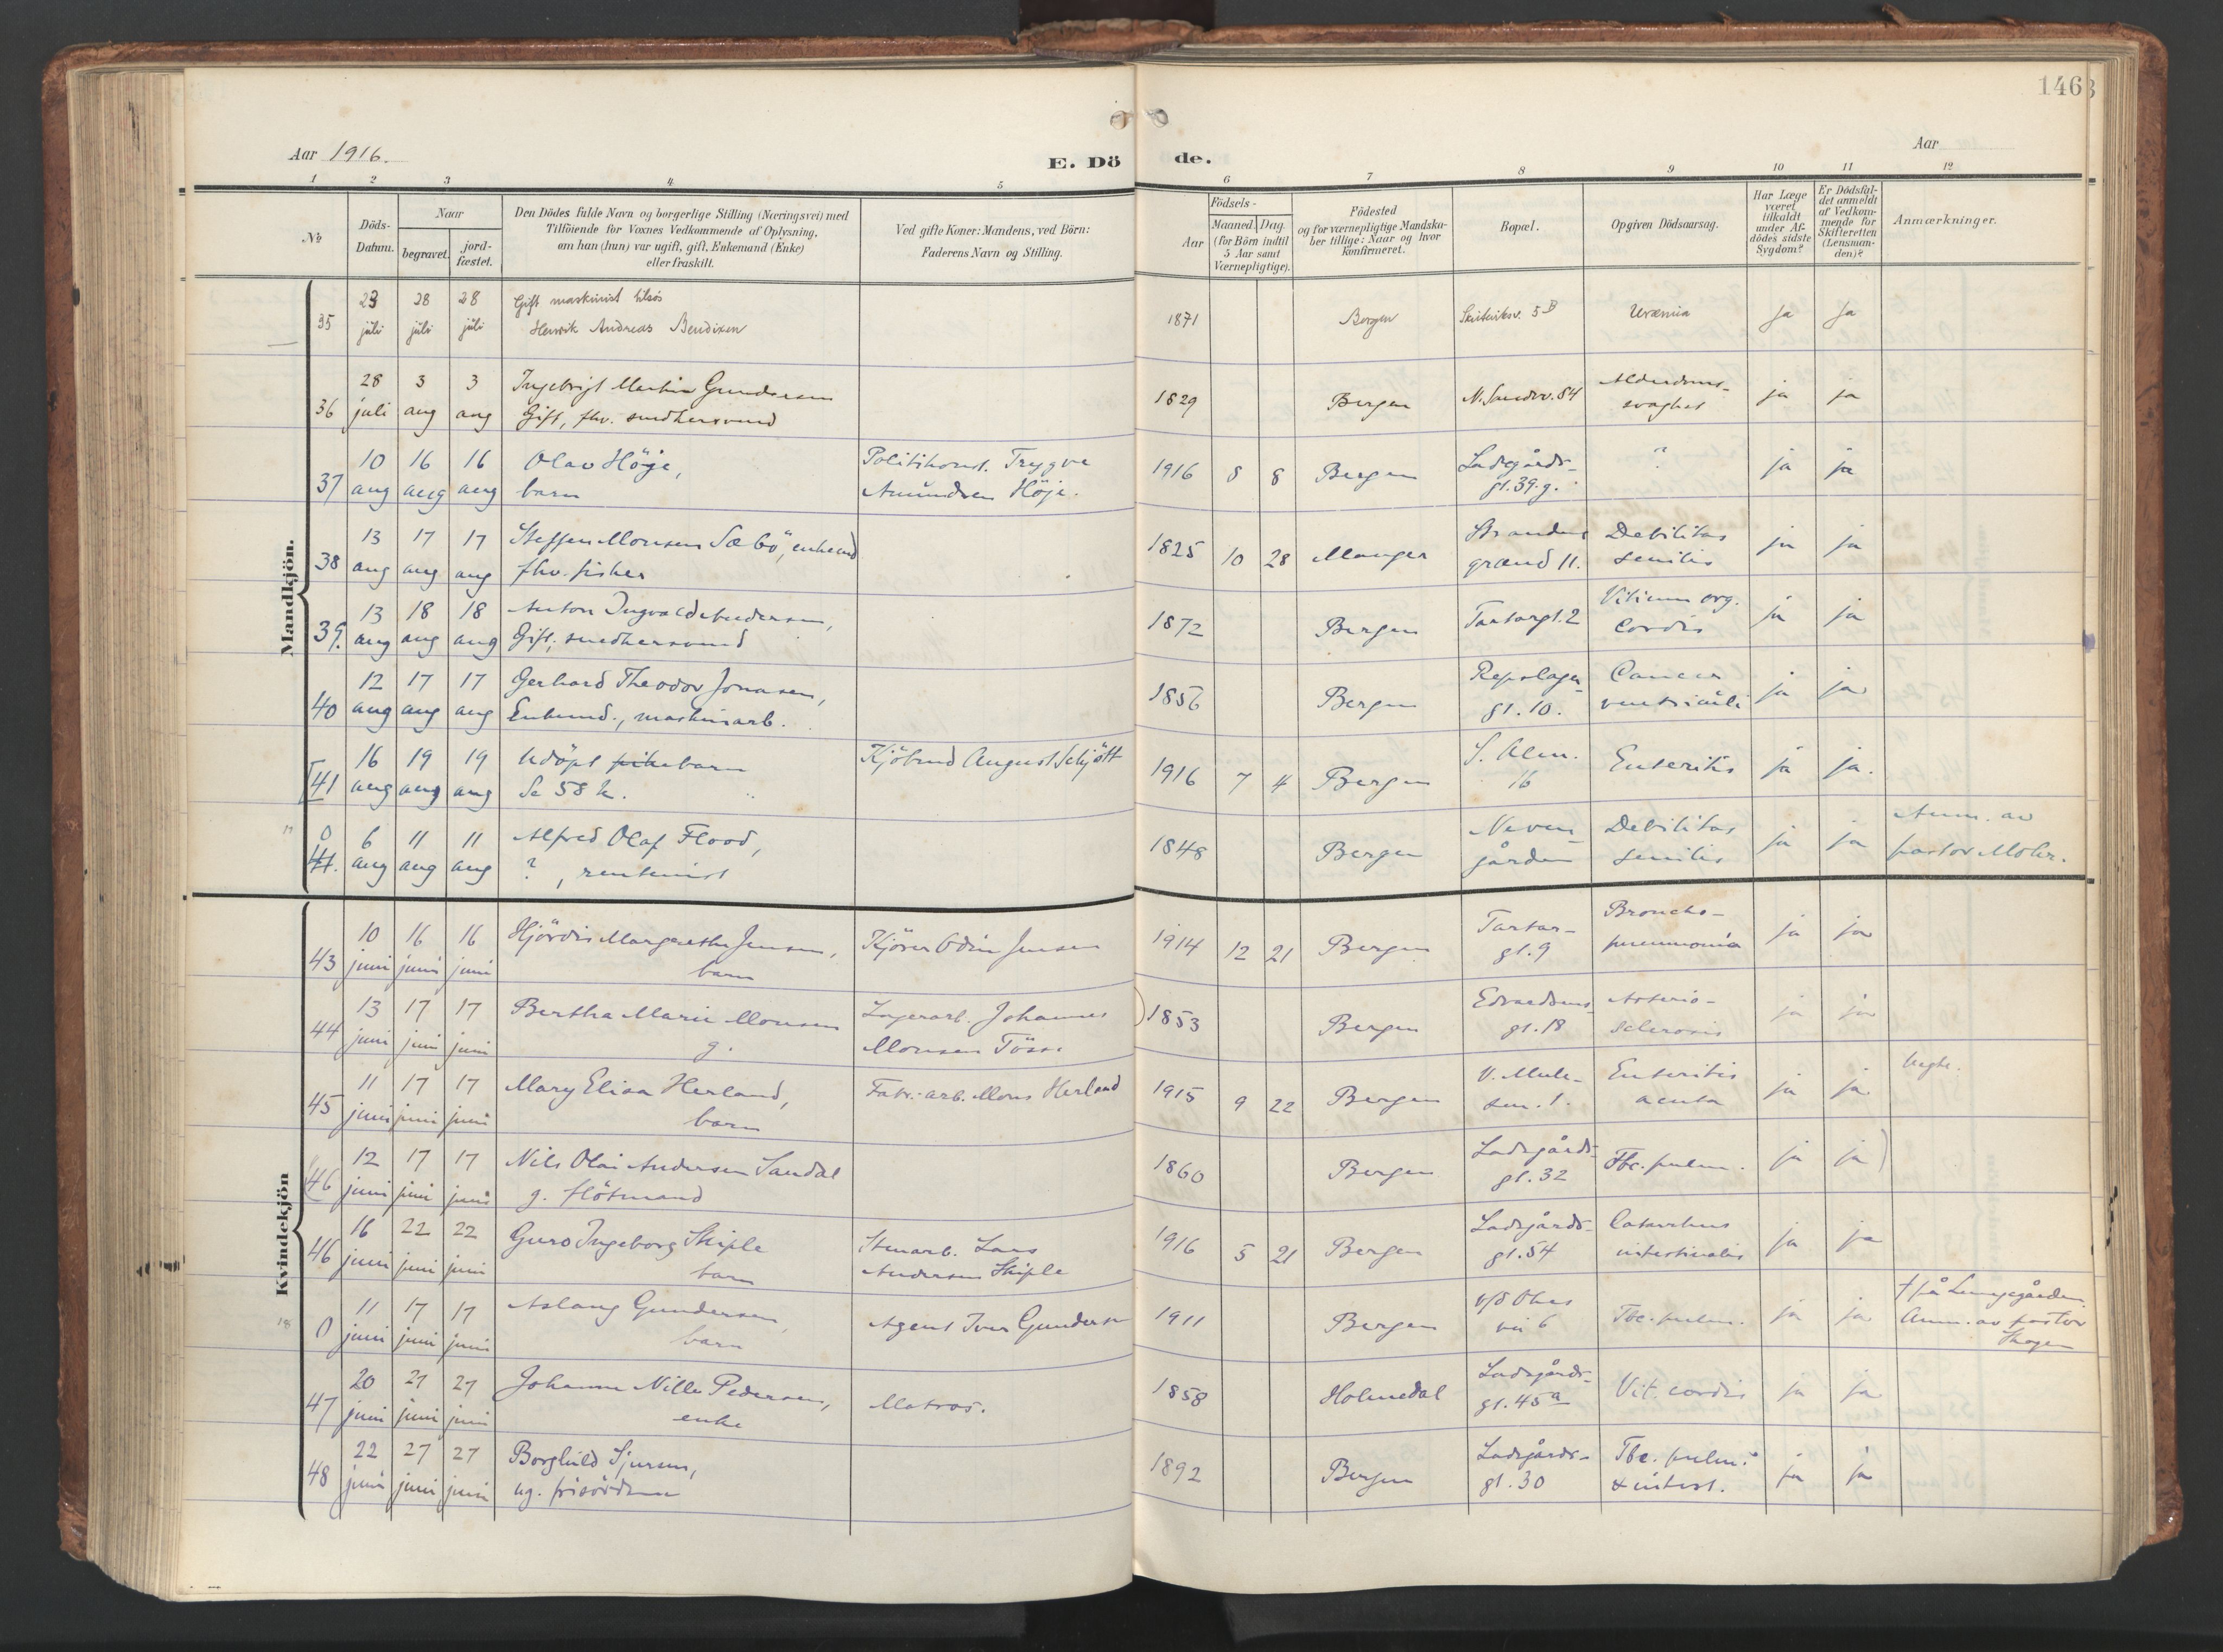 146
Aar 1916.
E. Dö de.
Aar
1 2 3 4 5 6 7 8 9 10 11 12
No
Döds-Datum.
Naar
begravet.
jord-fæstet.
Den Dödes fulde Navn og borgerlige Stilling (Næringsvei) med
Tilföiende for Voxnes Vedkommende af Oplysning,
om han (hun) var ugift, gift, Enkemand (Enke)
eller fraskilt.
Ved gifte Koner: Mandens, ved Börn:
Faderens Navn og Stilling.
Födsels-
Aar
Maaned. Dag.
(for Börn indtil
5 Aar samt
Værnepligtige).
Födested
og for værnepligtige Mandska-
ber tillige: Naar og hvor
konfirmeret.
Bopæl.
Opgiven Dödsaarsag.
Har Læge
været
tilkaldt
under Af-
dödes sidste
Sygdom?
Er Dödsfal-
det anmeldt
af Vedkom-
mende for
Skifteretten
(Lensman-
den)?
Anmærkninger.
Mandkjön.
35 23 juli 28 juli 28 juli Gift maskinist tilsøs
Henrik Andreas Bendixen 1871 Bergen 5 B Uræmia Ja Ja
36 28 juli 3 aug 3 aug Ingebrigt Martin Gundersen
Gift, fhv. smedhersvend 1829 Bergen N. Sandv. 84 Alderdoms-
svaghet ja ja
37 10 aug 16 aug 16 aug Olav Höje,
barn Politikonst. Trygve
Amundsen Höje. 1916 8 8 Bergen Ladegårds-
gt. 39. g. ? ja ja
38 13 aug 17 aug 17 aug Steffen Monsen Sæbö, enkemd
fhv. fisker 1825 10 28 Manger
grænd 11. Debilitas
senilis ja ja
39. 13 aug 18 aug 18 aug Anton Ingvald Andersen,
Gift, smedhersvend 1872 Bergen Tartargt. 2 Vitium org.
cordis ja ja
40 12 aug 17 aug 17 aug Gerhard Theodor Jonasen,
Enkemd., maskinarb. 1856 Bergen Repslager
gt. 10. Cancer
ventriculi ja ja
41 16 aug 19 aug 19 aug Udöpt pike barn
Se 58 k. Kjöbmd August Schjött 1916 7 4 Bergen S. Alm.
16 Enteritis ja ja.
0 41. 6 aug 11 aug 11 aug Alfred Olaf Flood,
?, rentenist 1848 Bergen Neven
gården Debilitas
senilis ja ja Anm. av
pastor Mohr.
Kvindekjön
43 10 juni 16 juni 16 juni Hjördis Margarethe Jensen,
barn Kjörer Odin Jensen 1914 12 21 Bergen Tartar-
gt. 9 Broncho-
pneumonia ja ja
44 13 juni 17 juni 17 juni Bertha Marie Monsen
g. Lagerarb. Johannes
Monsen 1853 Bergen Edvardsens
gt. 18 Arterio-
sclerosis ja ja
45 11 juni 17 juni 17 juni Mary Elisa Herland,
barn Fabr. arb. Mons Herland 1915 9 22 Bergen V. Mule-
sm. 1. Enteritis
acuta ja ja
(46 12 juni 17 juni 17 juni Nils Olai Andersen Sandal
g. flötmand 1860 Bergen Ladegårds-
gt. 32 Tbc. pulm. ja ja)
46 16 juni 22 juni 22 juni Guro Ingeborg Skiple
barn Stenarb. Lars
Andersen Skiple 1916 5 21 Bergen Ladegårds-
gt. 54 Catarrhus
intestinalis ja ja
0 11 juni 17 juni 17 juni Aslaug Gundersen,
barn Agent Iver Gundersen 1911 Bergen
vei 6 Tbc. pulm. ja ja † på Lungegården.
Anm. av pastor
Skagen
47 20 juni 27 juni 27 juni Johanne Nille Pedersen,
enke Matros. 1858 Holmedal Ladegårds-
gt. 45a Vit. cordis ja ja
48 22 juni 27 juni 27 juni Borghild Sjursen,
ug. frisördame 1892 Bergen Ladegårds-
gt. 30 Tbc. pulm.
& intest. ja ja